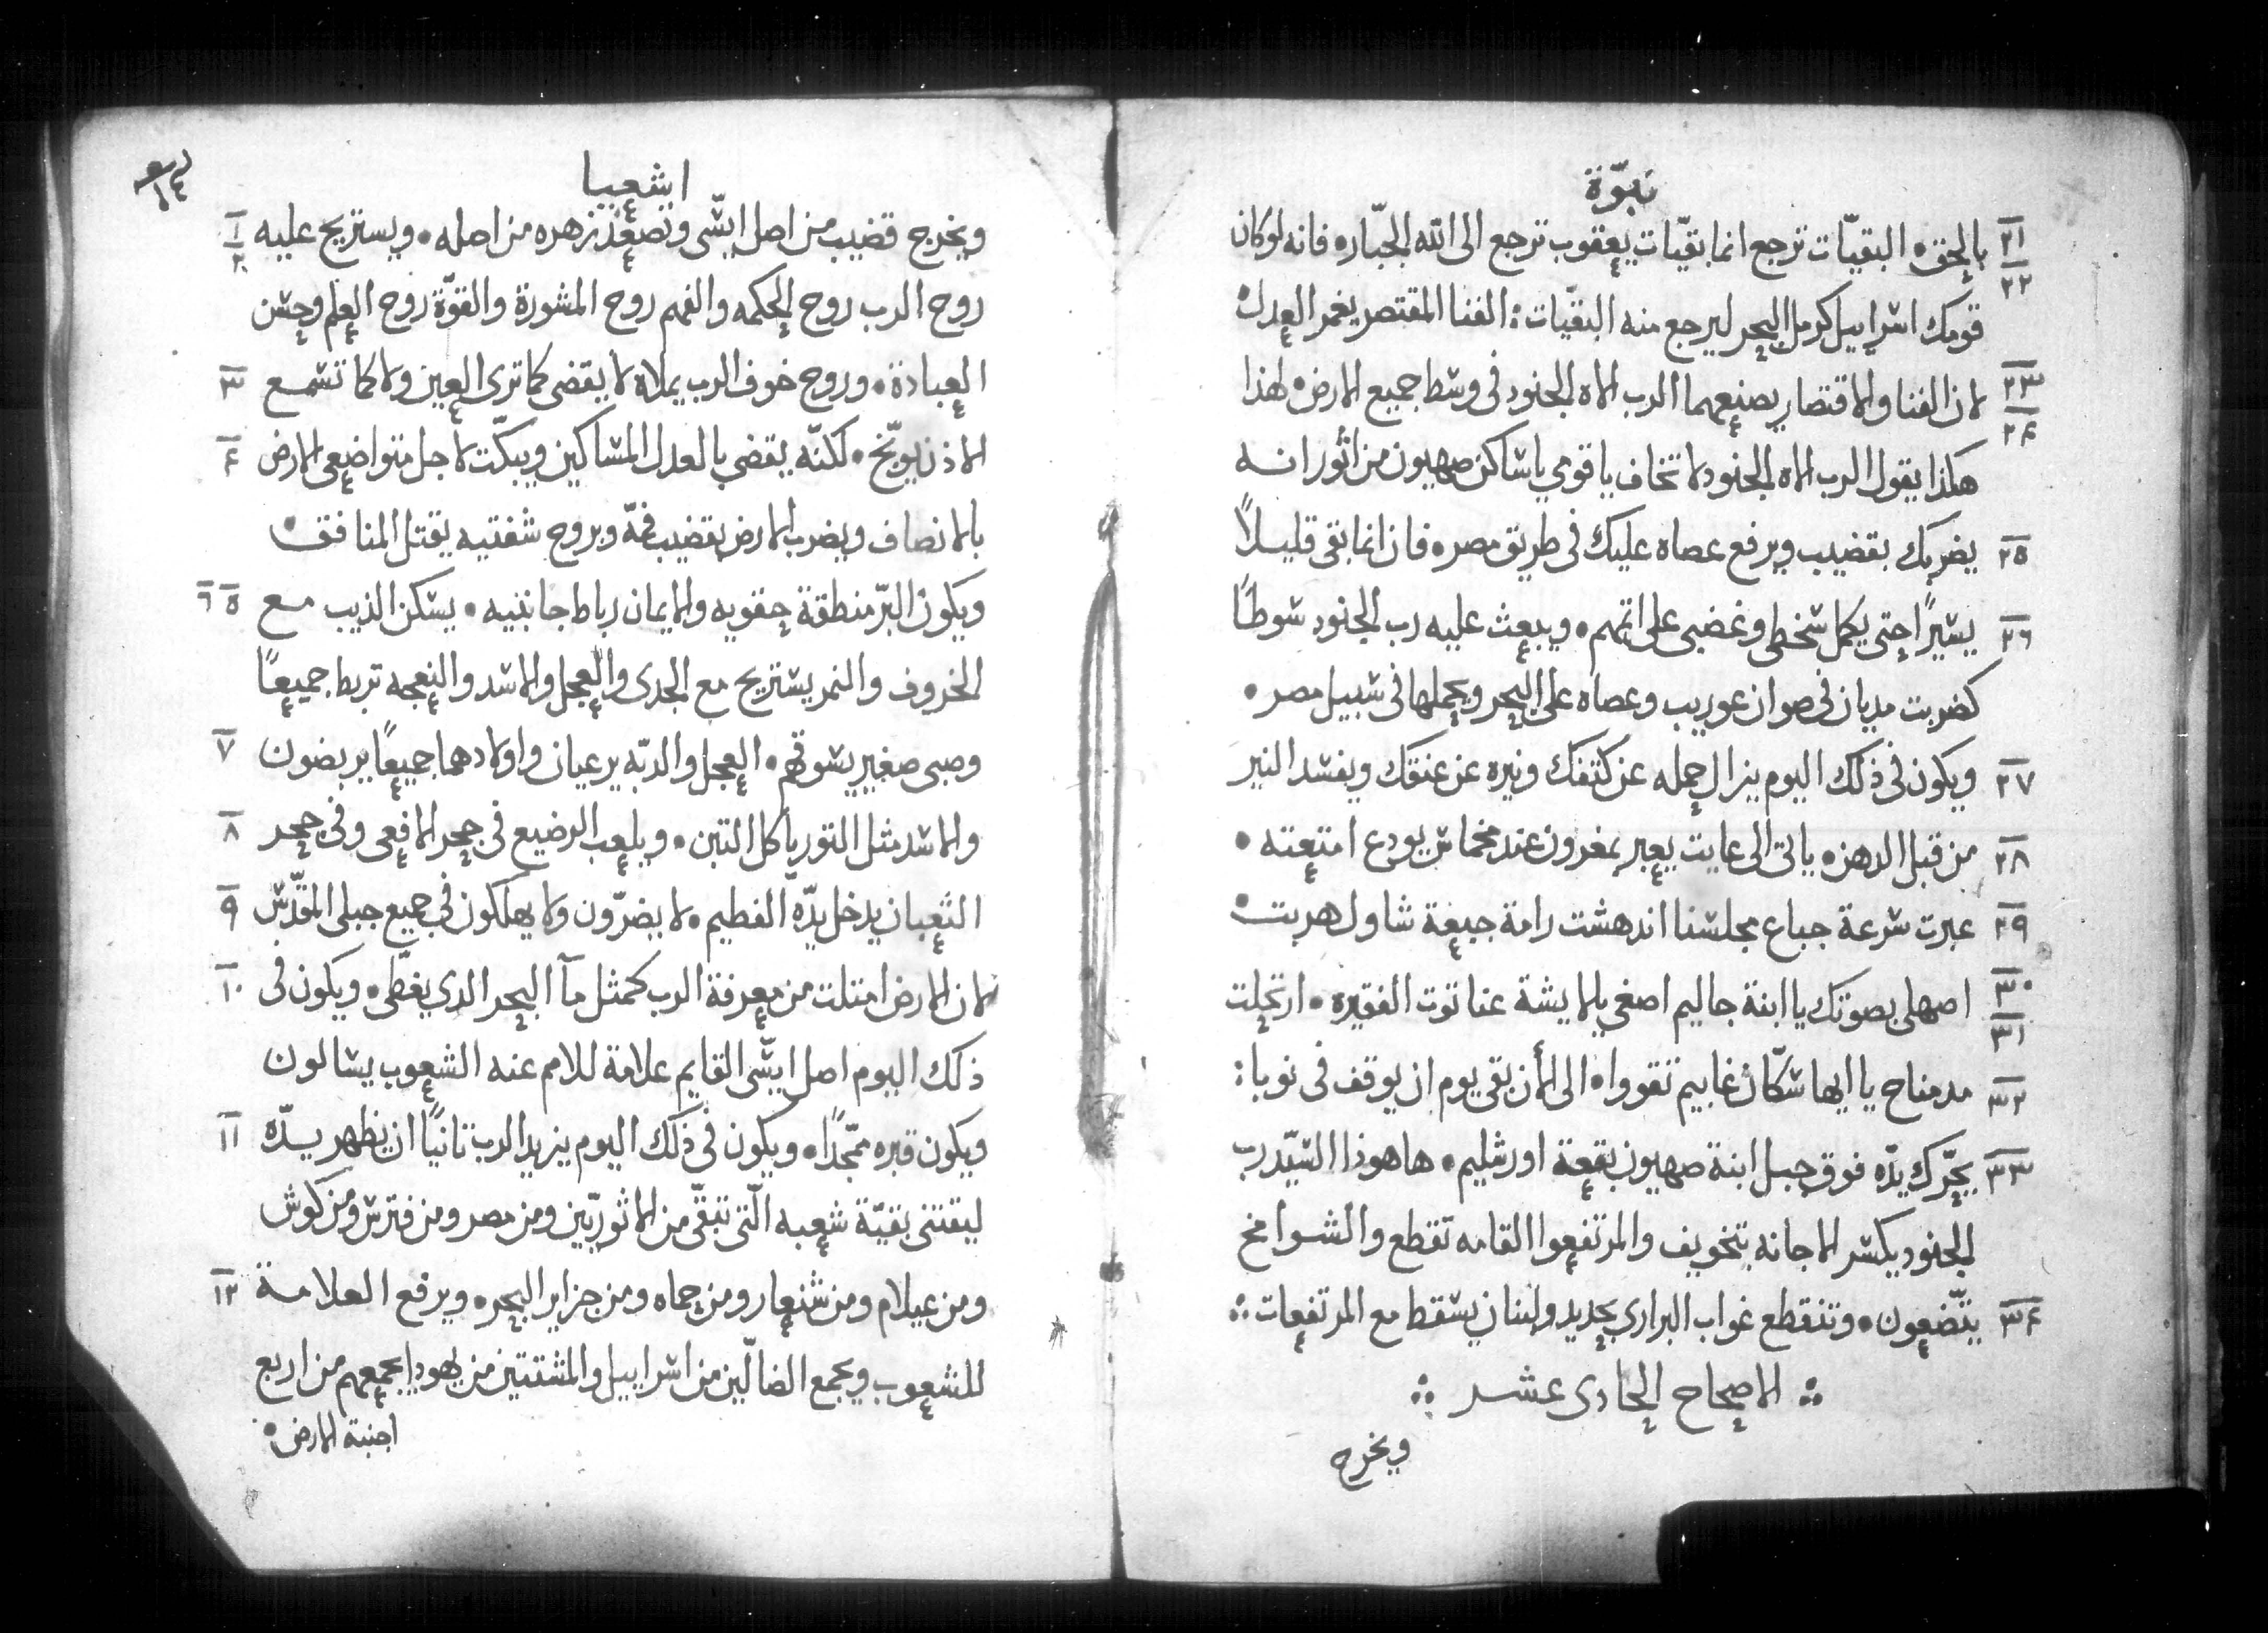 نبوّة
٢١ بالحق. البقيّات ترجع انما بقيّات يعقوب ترجع الى الله الجبّار. فانه لو كان
٢٢ قومك اسراييل كرمل البحر ليرجع منه البقيّات: الفنا المقتصر يغمر العدل.
٢٣ لان الفنا والاقتصار يصنعهما الرب الاه الجنود فى وسط جميع الارض. لهذا
٢٤ هكذا يقول الرب الاه الجنود لا تخاف يا قومي يا ساكن صهيون من أثور انه
٢٥ يضربك بقضيب ويرفع عصاه عليك فى طريق مصر. فان انما بقى قليلاً
٢٦ يسيرًا حتى يكمل سخطى وغضبى على اثمهم. ويبعث عليه رب الجنود سوطًا
كضربت مديان فى صوان عوريب وعصاه على البحر ويحملها فى سبيل مصر.
٢٧ ويكون فى ذلك اليوم يزال حمله عن كتفك ونيره عن عنقك ويفسد النير
٢٨ من قبل الدهن. ياتى الى عايت يعبر بمغرون عند مخماس يودع امتعته.
٢٩ عبرت سرعة جباع مجلسنا اندهشت رامة جبعة شاول هربت.
٣٠ اصهلى بصوتك يا ابنة جاليم اصغي يا لايشة عناتوت الفقيره. ارتحلت
٣١
٣٢ مدمناح يا ايها سكّان غابيم تقووا. الى الأن بقى يوم ان يوقف فى نوبا:
٣٣ يحّرك يدّه فوق جبل ابنة صهيون بقعة اورشليم. ها هوذا السّيد رب
الجنود يكسر الاجانه بتخويف والمرتفعوا القامه تقطع والشوامخ
٣٤ يتّضعون. وتنقطع غواب البراري بحديد ولبنان يسقط مع المرتفعات:.
:. الاصحاح الحادى عشر :.
ويخرج
ايشعيا
ويخرج قضيب من اصل ايسّى وتصعد زهره من اصله. ويستريح عليه ١ ٢
روح الرب روح الحكمه والفهم روح المشورة والقوّة روح العلم وحسن
العبادة. وروح خوف الرب يملاه لا يقضى كما ترى العين ولا كما تسمع ٣
الاذن يوبّخ. لكنّه يقضى بالعدل المساكين ويبكّت لاجل متواضعى الارض ٤
بالانصاف ويضرب الارض بقضيب فمّه وبروح شفتيه يقتل المنافق.
ويكون البرّ منطقة حقويه والايمان رباط جانبيه. يسكن الذيب مع ٥ ٦
الخروف والنمر يستريح مع الجدى والعجل والاسد والنعجه تربط جميعًا
وصبى صغير يسوقهم. العجل والدبّه يرعيان واولادهما جميعًا يربضون ٧
والاسد مثل التور ياكل التبن. ويلعب الرضيع فى جحر الافعى وفى جحر ٨
الثعبان يدخل يدّه الفطيم. لا يضرّون ولا يهلكون فى جميع جبلى المقدّس ٩
لان الارض امتلت من معرفة الرب كمثل مآ البحر الدي يغطّى. ويكون فى ١٠
ذلك اليوم اصل ايسّى القايم علامة للامم عنه الشعوب يسالون
ويكون قبره ممّجدًا. ويكون فى ذلك اليوم يزيد الرب تانيًا ان يظهر يدّه ١١
ليقتنى بقيّة شعبه الّتى تبقّى من الاثوريّين ومن مصر ومن فترس ومن كوش
ومن عيلام ومن شنعار ومن حماه ومن جزاير البحر. ويرفع العلامة ١٢
للشعوب ويجمع الضالّين من اسراييل والمشتتين من يهودا يجمعهم من اربع
اجنبة الارض.